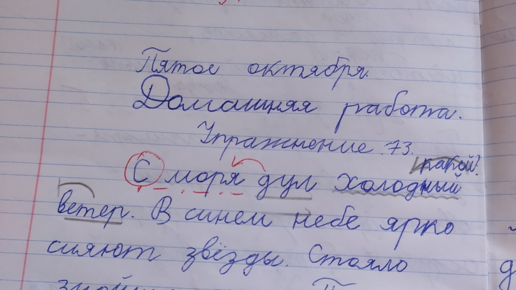 Пятое октября.
Домашняя работа.
Упражнение 73.
какой?
С моря дул холодный
ветер. В синем небе ярко
сияют звёзды. Стояло